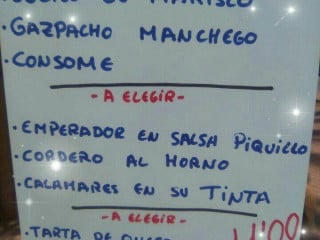 DE MARISCO
· GAZPACHO MANCHEGO
· CONSOME
- A ELEGIR -
· EMPERADOR EN SALSA PIQUILLO
· CORDERO AL HORNO
· CALAMARES EN SU TINTA
- A ELEGIR -
· TARTA DE